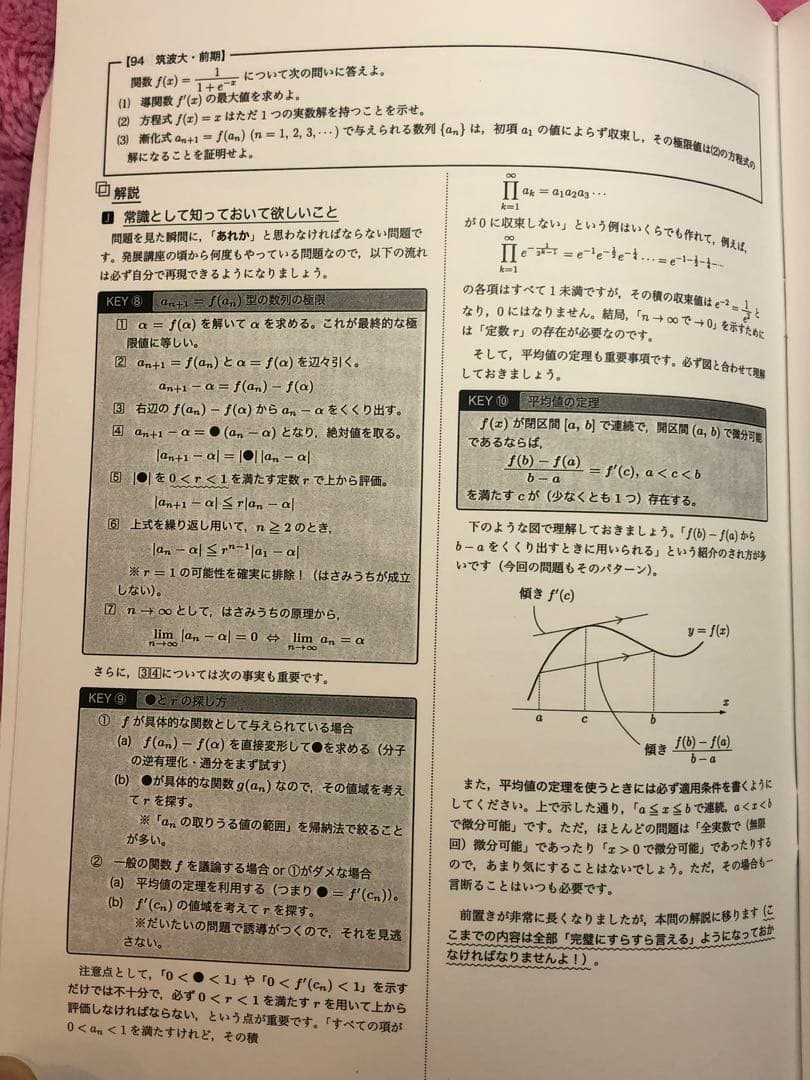 【94 筑波大・前期】
関数 f(x) = 1/(1+e^{-x}) について次の問いに答えよ。
(1) 導関数 f′(x) の最大値を求めよ。
(2) 方程式 f(x) = x はただ 1 つの実数解を持つことを示せ。
(3) 漸化式 a_{n+1} = f(a_n) (n = 1, 2, 3, ⋯) で与えられる数列 {a_n} は，初項 a_1 の値によらず収束し，その極限値は(2)の方程式の
解になることを証明せよ。
解説
J 常識として知っておいて欲しいこと
問題を見た瞬間に，「あれか」と思わなければならない問題で
す。発展講座の頃から何度もやっている問題なので，以下の流れ
は必ず自分で再現できるようになりましょう。
KEY⑧ a_{n+1} = f(a_n) 型の数列の極限
1 α = f(α) を解いて α を求める。これが最終的な極
限値に等しい。
2 a_{n+1} = f(a_n) と α = f(α) を辺々引く。
a_{n+1} − α = f(a_n) − f(α)
3 右辺の f(a_n) − f(α) から a_n − α をくくり出す。
4 a_{n+1} − α = ●(a_n − α) となり，絶対値を取る。
|a_{n+1} − α| = |●||a_n − α|
5 |●| を 0 < r < 1 を満たす定数 r で上から評価。
|a_{n+1} − α| ≦ r|a_n − α|
6 上式を繰り返し用いて，n ≧ 2 のとき，
|a_n − α| ≦ r^{n−1}|a_1 − α|
※ r = 1 の可能性を確実に排除！（はさみうちが成立
しない）。
7 n → ∞ として，はさみうちの原理から，
lim_{n→∞} |a_n − α| = 0 ⇔ lim_{n→∞} a_n = α
さらに，3 4 については次の事実も重要です。
KEY⑨ ●と r の探し方
① f が具体的な関数として与えられている場合
(a) f(a_n) − f(α) を直接変形して●を求める（分子
の逆有理化・通分をまず試す）
(b) ●が具体的な関数 g(a_n) なので，その値域を考え
て r を探す。
※「a_n の取りうる値の範囲」を帰納法で絞ること
が多い。
② 一般の関数 f を議論する場合 or ①がダメな場合
(a) 平均値の定理を利用する（つまり ● = f′(c_n)）。
(b) f′(c_n) の値域を考えて r を探す。
※だいたいの問題で誘導がつくので，それを見逃
さない。
注意点として，「0 < ● < 1」や「0 < f′(c_n) < 1」を示す
だけでは不十分で，必ず 0 < r < 1 を満たす r を用いて上から
評価しなければならない，という点が重要です。「すべての項が
0 < a_n < 1 を満たすけれど，その積
∏_{k=1}^{∞} a_k = a_1a_2a_3 ⋯
が 0 に収束しない」という例はいくらでも作れて，例えば，
∏_{k=1}^{∞} e^{-1/2^{k−1}} = e^{-1}e^{-1/2}e^{-1/4} ⋯ = e^{-1−1/2−1/4−⋯}
の各項はすべて 1 未満ですが，その積の収束値は e^{-2} = 1/e^2 と
なり，0 にはなりません。結局，「n → ∞ で → 0」を示すために
は「定数 r」の存在が必要なのです。
そして，平均値の定理も重要事項です。必ず図と合わせて理解
しておきましょう。
KEY⑩ 平均値の定理
f(x) が閉区間 [a, b] で連続で，開区間 (a, b) で微分可能
であるならば，
(f(b) − f(a))/(b − a) = f′(c), a < c < b
を満たす c が（少なくとも 1 つ）存在する。
下のような図で理解しておきましょう。「f(b) − f(a) から
b − a をくくり出すときに用いられる」という紹介のされ方が多
いです（今回の問題もそのパターン）。
傾き f′(c)
y = f(x)
x
a c b
傾き (f(b) − f(a))/(b − a)
また，平均値の定理を使うときには必ず適用条件を書くように
してください。上で示した通り，「a ≦ x ≦ b で連続，a < x < b
で微分可能」です。ただ，ほとんどの問題は「全実数で（無限
回）微分可能」であったり「x > 0 で微分可能」であったりする
ので，あまり気にすることはないでしょう。ただ，その場合も一
言断ることはいつも必要です。
前置きが非常に長くなりましたが，本問の解説に移ります（こ
こまでの内容は全部「完璧にすらすら言える」ようになっておか
なければなりませんよ！）。